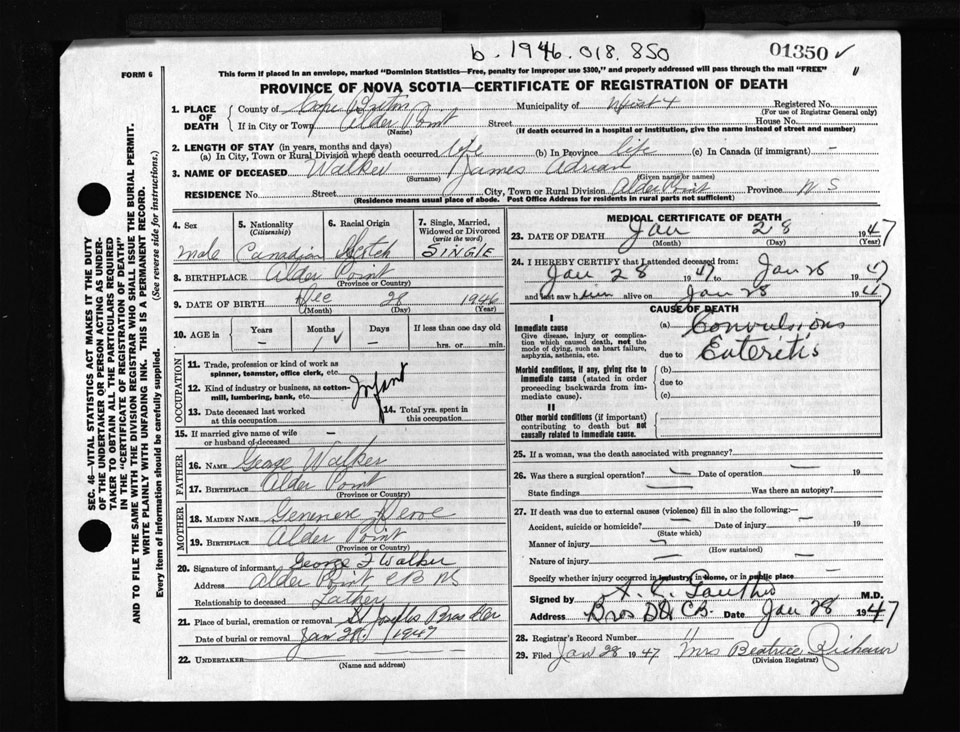 b. 1946. 018. 850
01350 ✓
FORM 6
This form if placed in an envelope, marked "Dominion Statistics—Free, penalty for improper use $300," and properly addressed will pass through the mail "FREE"
PROVINCE OF NOVA SCOTIA—CERTIFICATE OF REGISTRATION OF DEATH
1. PLACE OF DEATH County of Cape Breton Municipality of Dist 4 Registered No.
(For use of Registrar General only)
If in City or Town Alder Point Street House No.
(Name) (If death occurred in a hospital or institution, give the name instead of street and number)
2. LENGTH OF STAY (in years, months and days)
(a) In City, Town or Rural Division where death occurred life (b) In Province life (c) In Canada (if immigrant) -
3. NAME OF DECEASED Walker James Adrian
(Surname) (Given name or names)
RESIDENCE No. Street City, Town or Rural Division Alder Point Province N S
(Residence means usual place of abode. Post Office Address for residents in rural parts not sufficient)
4. Sex 5. Nationality (Citizenship) 6. Racial Origin 7. Single, Married, Widowed or Divorced (write the word)
male Canadian Scotch SINGLE
8. BIRTHPLACE Alder Point
(Province or Country)
9. DATE OF BIRTH Dec 28 1946
(Month) (Day) (Year)
10. AGE in Years Months Days If less than one day old
- 1 ✓ - hrs. or min.
OCCUPATION
11. Trade, profession or kind of work as spinner, teamster, office clerk, etc.
12. Kind of industry or business, as cotton-mill, lumbering, bank, etc.
Infant
13. Date deceased last worked at this occupation
14. Total yrs. spent in this occupation
15. If married give name of wife or husband of deceased -
FATHER
16. NAME George Walker
17. BIRTHPLACE Alder Point
(Province or Country)
MOTHER
18. MAIDEN NAME
19. BIRTHPLACE Alder Point
(Province or Country)
20. Signature of informant George F Walker
Address Alder Point C B N S
Relationship to deceased Father
21. Place of burial, cremation or removal St Josephs Bras d'Or
Date of burial or removal Jan 1947
22. UNDERTAKER
(Name and address)
MEDICAL CERTIFICATE OF DEATH
23. DATE OF DEATH Jan 28 1947
(Month) (Day) (Year)
24. I HEREBY CERTIFY that I attended deceased from:
Jan 28 1947 to Jan 28 1947
and last saw him alive on Jan 28 1947
CAUSE OF DEATH
I
Immediate cause
Give disease, injury or complication which caused death, not the mode of dying, such as heart failure, asphyxia, asthenia, etc.
(a) Convulsions
due to Enteritis
Morbid conditions, if any, giving rise to immediate cause (stated in order proceeding backwards from immediate cause).
(b)
due to
(c)
II
Other morbid conditions (if important) contributing to death but not causally related to immediate cause.
25. If a woman, was the death associated with pregnancy?
26. Was there a surgical operation? - Date of operation - 19
State findings - Was there an autopsy? -
27. If death was due to external causes (violence) fill in also the following:—
Accident, suicide or homicide? - Date of injury - 19
(State which)
Manner of injury -
(How sustained)
Nature of injury - -
Specify whether injury occurred in industry, in home, or in public place -
Signed by M.D.
Address Bras D'Or C.B. Date Jan 28 1947
28. Registrar's Record Number 11
29. Filed Jan 28 1947 Mrs Beatrice
(Division Registrar)
SEC. 46—VITAL STATISTICS ACT MAKES IT THE DUTY
OF THE UNDERTAKER OR PERSON ACTING AS UNDER-
TAKER TO OBTAIN ALL THE PARTICULARS REQUIRED
IN THE "CERTIFICATE OF REGISTRATION OF DEATH"
AND TO FILE THE SAME WITH THE DIVISION REGISTRAR WHO SHALL ISSUE THE BURIAL PERMIT.
WRITE PLAINLY WITH UNFADING INK. THIS IS A PERMANENT RECORD.
Every item of information should be carefully supplied. (See reverse side for instructions.)